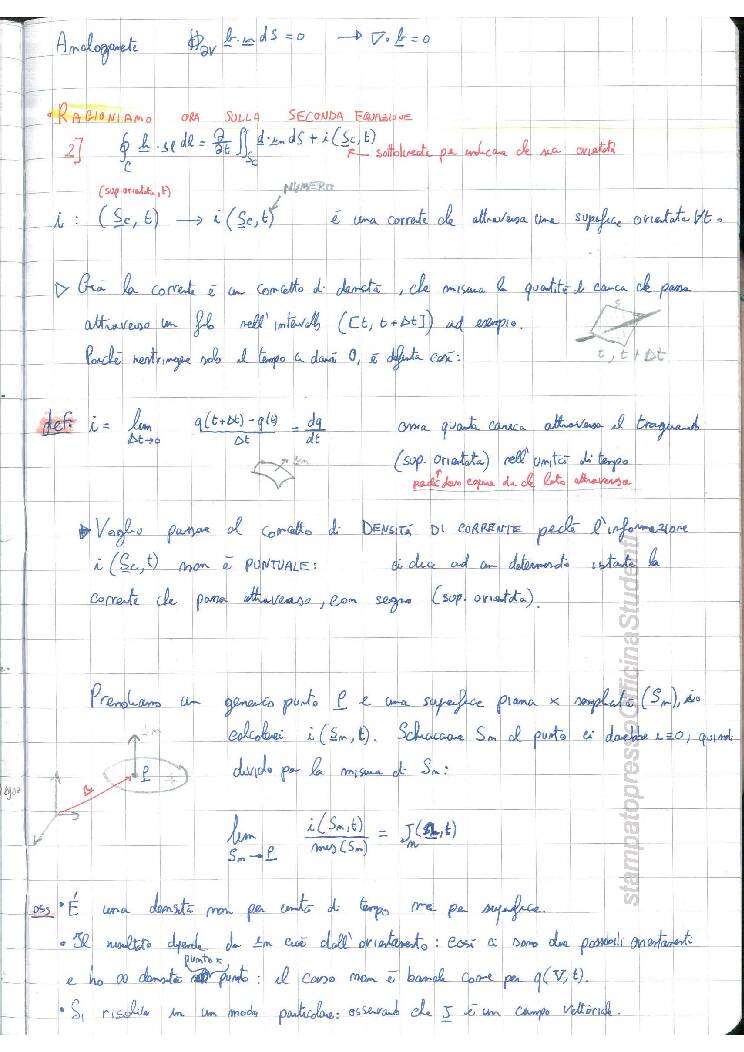 Analogamente ∯∂V b · in dS = 0 → ∇ · b = 0
• RAGIONIAMO ORA SULLA SECONDA EQUAZIONE
2] ∮C h · il dl = ∂/∂t ∬Sc d · in dS + i (Sc, t)
← sottolineata per indicare che sia orientata
(sup orientata, t)
NUMERO
i : (Sc, t) → i (Sc, t) è una corrente che attraversa una superficie orientata ∀t.
▷ Già la corrente è un concetto di densità, che misura la quantità di carica che passa
attraverso un filo nell'intervallo ([t, t + Δt]) ad esempio.
S
t, t + Δt
Poiché restringere solo il tempo a darà 0, è definita così:
def: i = lim Δt→0 q(t+Δt) - q(t) / Δt = dq/dt
in
ossia quanta carica attraversa il traguardo
(sup. orientata) nell'unità di tempo
perché devo capire da che lato attraversa
▷ Voglio passare al concetto di DENSITÀ DI CORRENTE perché l'informazione
i (Sc, t) non è PUNTUALE: ci dice ad un determinato istante la
corrente che passa attraverso, con segno (sup. orientata).
Prendiamo un generico punto P e una superficie piana x semplicità (Sm), io
calcolerei i (Sm, t). Schiacciare Sm al punto ci darebbe i=0, quindi
divido per la misura di Sm:
in
P
r
lim Sm→P i (Sm, t) / mes (Sm) = Jn (r, t)
oss • È una densità non per unità di tempo ma per superficie.
• Il risultato dipende da in cioè dall'orientamento: così ci sono due possibili orientamenti
punto x
e ho ∞ densità punto: il caso non è banale come per q(V, t).
• Si risolve in un modo particolare: osservando che J è un campo vettoriale.
stampatopressoOfficinaStudenti